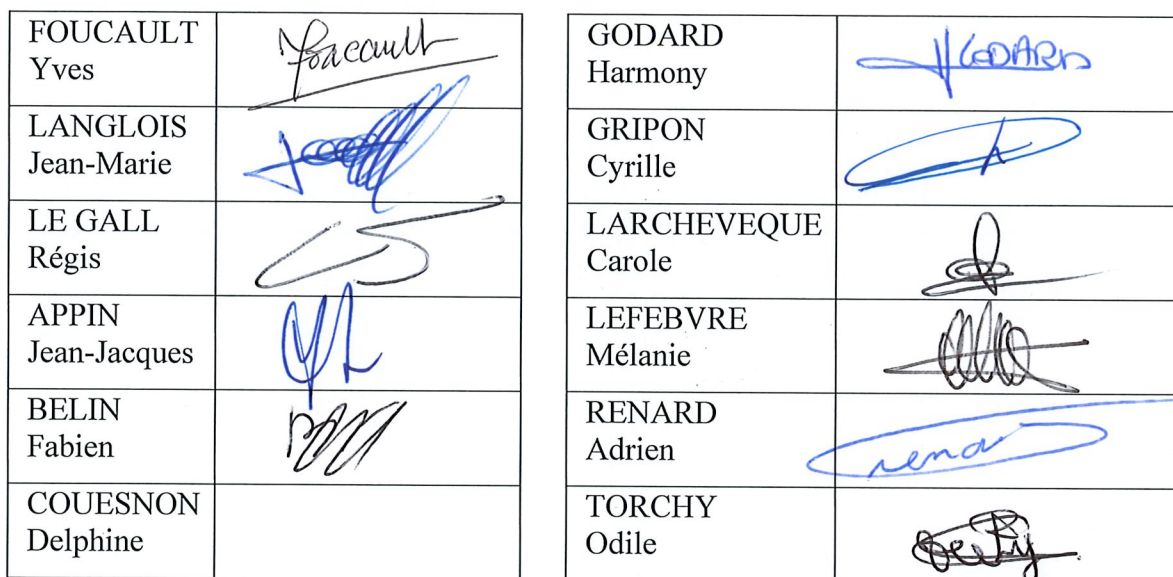 FOUCAULT
Yves
Foucault
LANGLOIS
Jean-Marie
LE GALL
Régis
APPIN
Jean-Jacques
BELIN
Fabien
COUESNON
Delphine
GODARD
Harmony
H GODARD
GRIPON
Cyrille
LARCHEVEQUE
Carole
LEFEBVRE
Mélanie
RENARD
Adrien
TORCHY
Odile